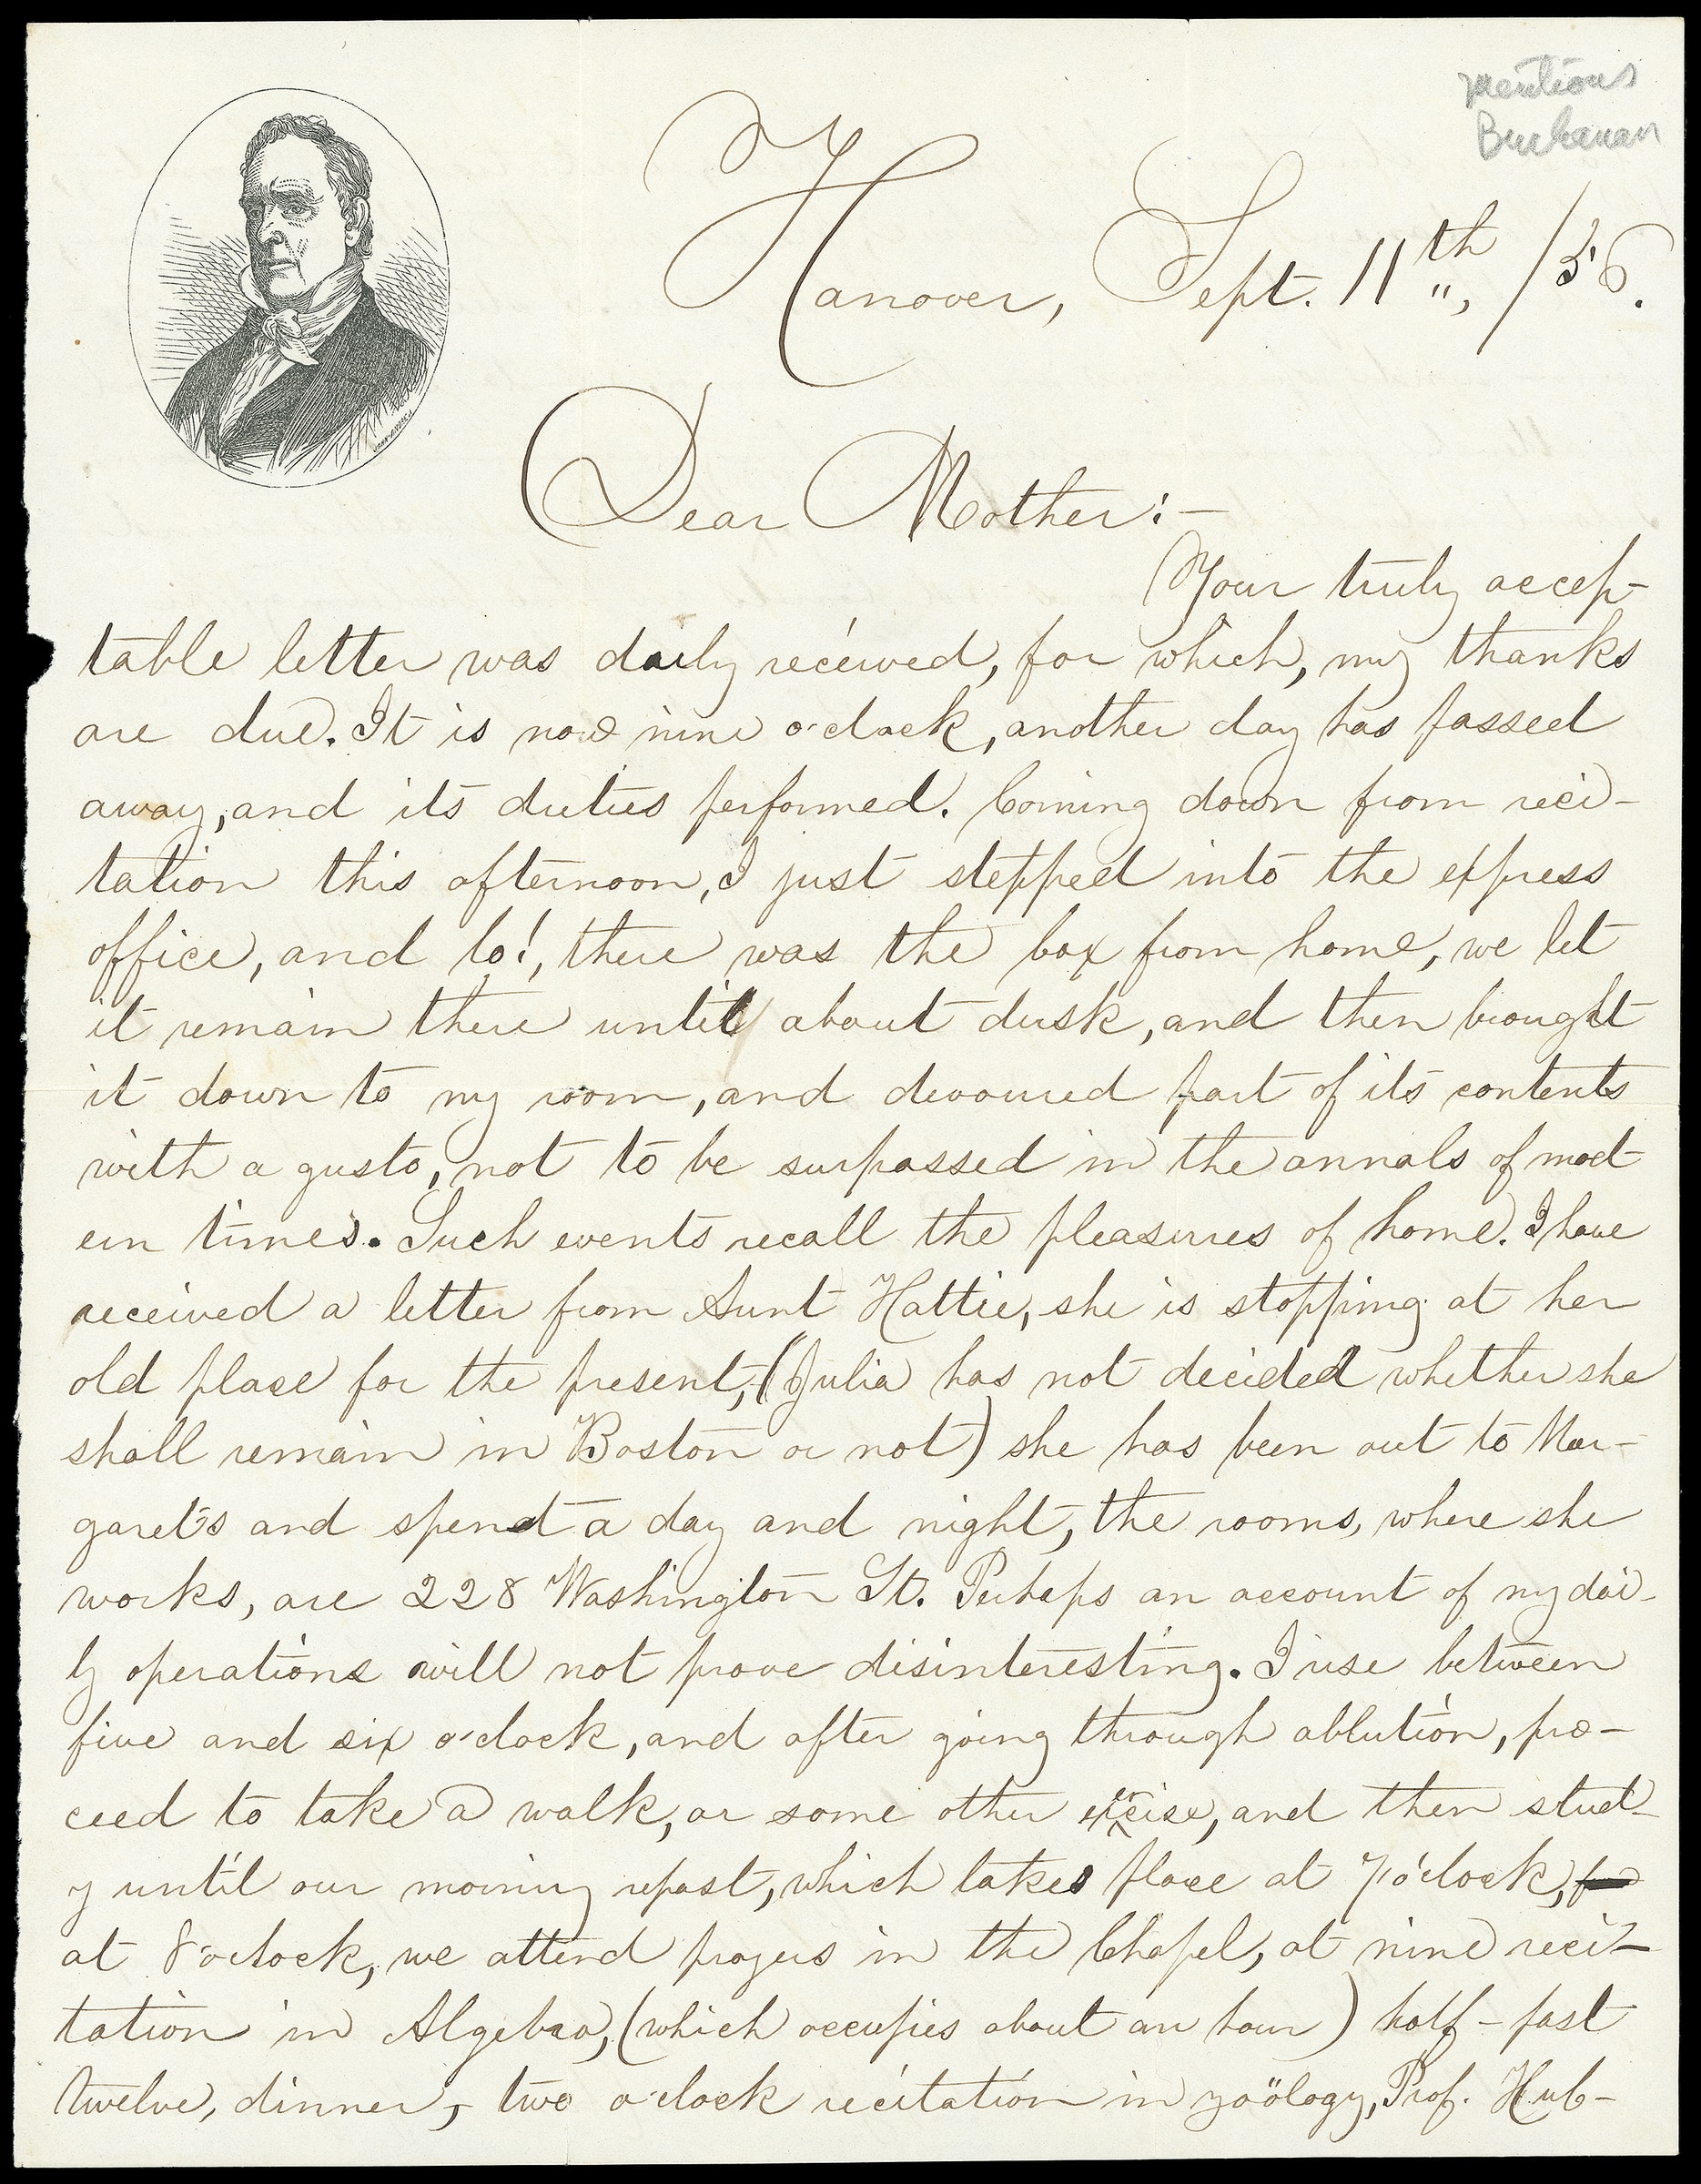 mentions
Buchanan
Hanover, Sept. 11th, /56.
Dear Mother:—
Your truly accep-
table letter was daily received, for which, my thanks
are due. It is now nine o'clock, another day has passed
away, and its duties performed. Coming down from reci-
tation this afternoon, I just stepped into the express
office, and lo!, there was the box from home, we let
it remain there until about dusk, and then brought
it down to my room, and devoured part of its contents
with a gusto, not to be surpassed in the annals of mod-
ern times. Such events recall the pleasures of home. I have
received a letter from Aunt Hattie, she is stopping at her
old place for the present, (Julia has not decided whether she
shall remain in Boston or not) she has been out to Mar-
garet's and spend a day and night, the rooms, where she
works, are 228 Washington St. Perhaps an account of my dai-
ly operations will not prove disinteresting. I rise between
five and six o'clock, and after going through ablution, pro-
ceed to take a walk, or some other exercise, and then stud-
y until our morning repast, which takes place at 7 o'clock,
at 8 o'clock, we attend prayers in the Chapel, at nine reci-
tation in Algebra, (which occupies about an hour) half-past
twelve, dinner, two o'clock recitation in zoölogy, Prof. Hub-